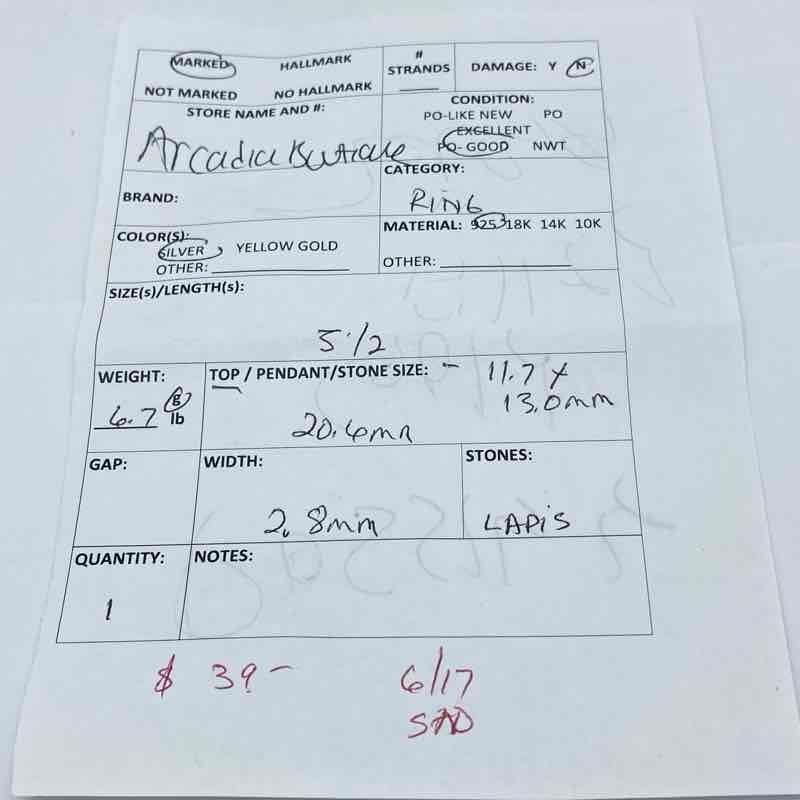 MARKED HALLMARK
NOT MARKED NO HALLMARK
# STRANDS
DAMAGE: Y N
STORE NAME AND #:
Arcadia
CONDITION:
PO-LIKE NEW PO
EXCELLENT
PO- GOOD NWT
BRAND:
CATEGORY:
RING
COLOR(S):
SILVER YELLOW GOLD
OTHER:
MATERIAL: 925 18K 14K 10K
OTHER:
SIZE(s)/LENGTH(s):
5 1/2
WEIGHT:
6.7 g
lb
TOP / PENDANT/STONE SIZE: - 11.7 x
13.0mm
20.6mm
GAP:
WIDTH:
2.8mm
STONES:
LAPIS
QUANTITY:
1
NOTES:
$ 39- 6/17